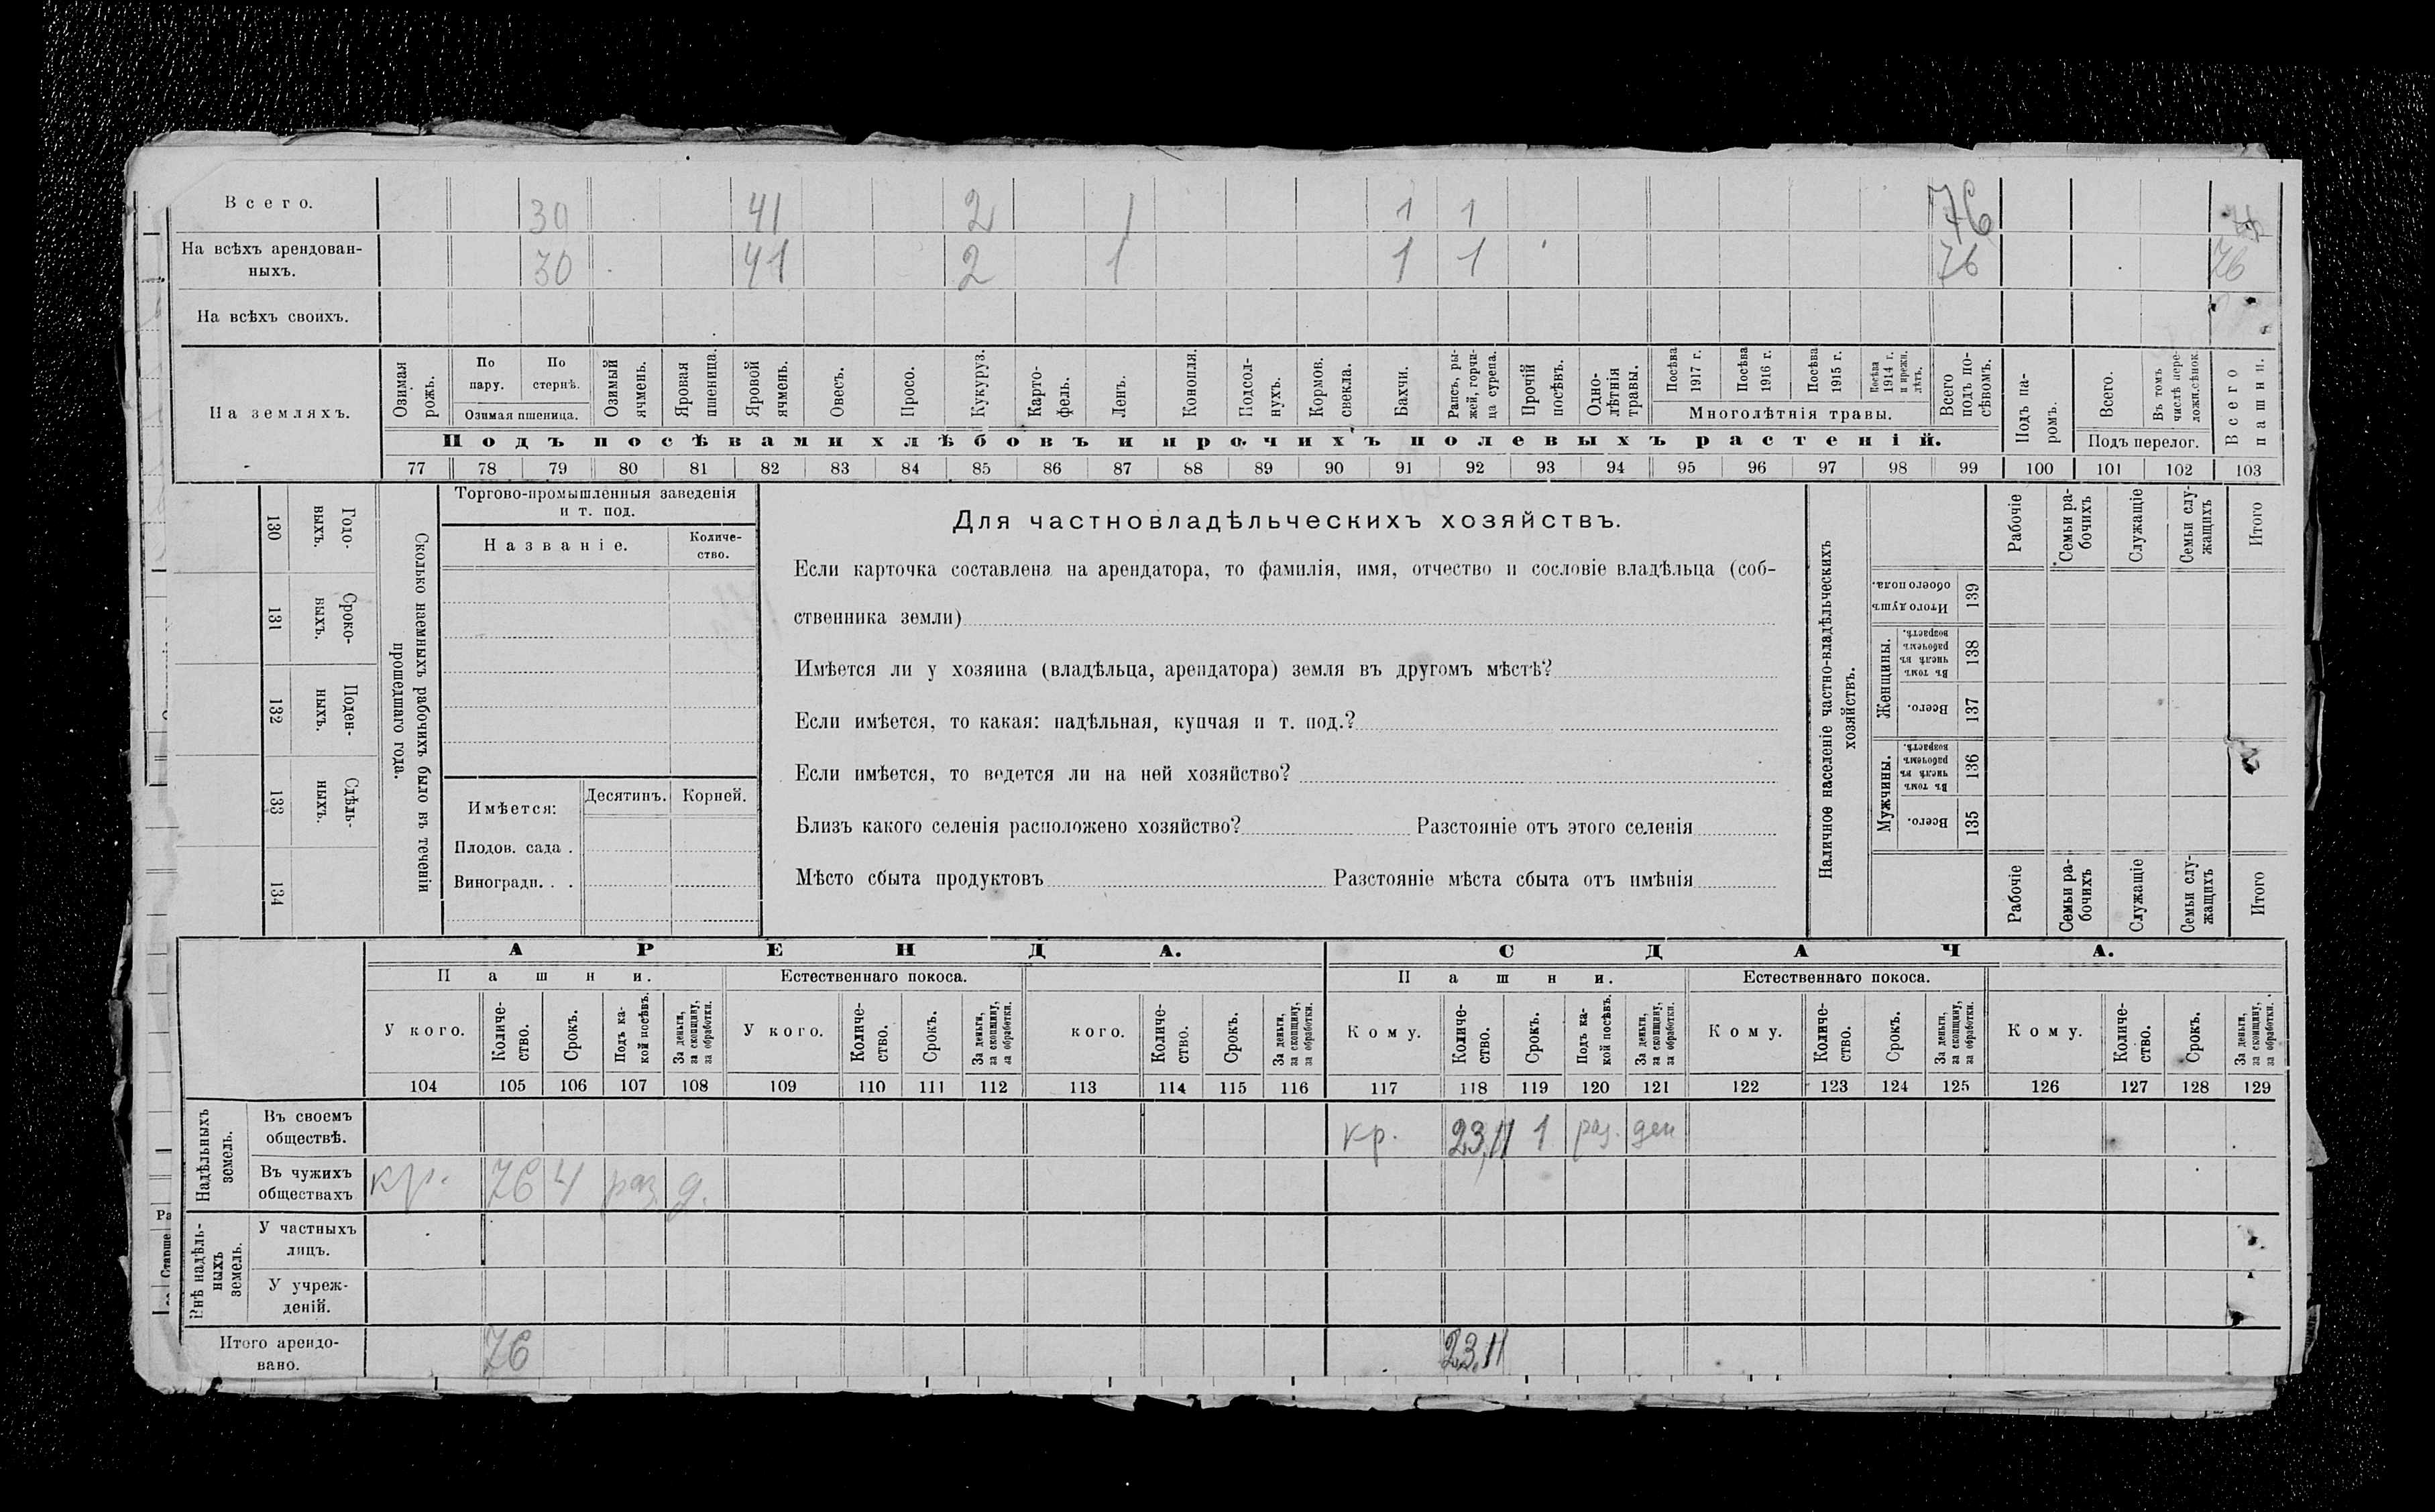 Всего. 30 41 2 1 1 1 76
На всѣхъ арендован-
ныхъ. 30 41 2 1 1 1 76 76
На всѣхъ своихъ.
На земляхъ.
Озимая рожь.
По пару.
По стернѣ.
Озимая пшеница.
Озимый ячмень.
Яровая пшеница.
Яровой ячмень.
Овесъ.
Просо.
Кукуруз.
Карто-
фель.
Ленъ.
Конопля.
Подсол-
нухъ.
Кормов.
свекла.
Бахчи.
Рапсъ, ры-
жей, горчи-
ца сурепа.
Прочій
посѣвъ.
Одно-
лѣтнія
травы.
Посѣва
1917 г.
Посѣва
1916 г.
Посѣва
1915 г.
Посѣва
1914 г.
и прежн.
лѣтъ.
Многолѣтнія травы.
Всего
подъ по-
сѣвомъ.
Подъ па-
ромъ.
Всего.
Въ томъ
числѣ пере-
ложн.сѣнок.
Подъ перелог.
Всего
пашни.
Подъ посѣвами хлѣбовъ и прочихъ полевыхъ растеній.
77 78 79 80 81 82 83 84 85 86 87 88 89 90 91 92 93 94 95 96 97 98 99 100 101 102 103
130 Годо-
выхъ.
131 Сроко-
выхъ.
132 Поден-
ныхъ.
133 Сдѣль-
ныхъ.
134
Сколько наемныхъ рабочихъ было въ теченіи
прошедшаго года.
Торгово-промышленныя заведенія
и т. под.
Названіе.
Количе-
ство.
Имѣется:
Десятинъ. Корней.
Плодов. сада .
Виноградн. . .
Для частновладѣльческихъ хозяйствъ.
Если карточка составлена на арендатора, то фамилія, имя, отчество и сословіе владѣльца (соб-
ственника земли)
Имѣется ли у хозяина (владѣльца, арендатора) земля въ другомъ мѣстѣ?
Если имѣется, то какая: надѣльная, купчая и т. под.?
Если имѣется, то ведется ли на ней хозяйство?
Близъ какого селенія расположено хозяйство? Разстояніе отъ этого селенія
Мѣсто сбыта продуктовъ Разстояніе мѣста сбыта отъ имѣнія
Наличное населеніе частно-владѣльческихъ
хозяйствъ.
Рабочіе
Семьи ра-
бочихъ
Служащіе
Семьи слу-
жащихъ
Итого
Итого душъ
обоего пола. 139
Женщины.
Въ томъ
числѣ въ
рабочемъ
возрастѣ. 138
Всего. 137
Мужчины.
Въ томъ
числѣ въ
рабочемъ
возрастѣ. 136
Всего. 135
Рабочіе
Семьи ра-
бочихъ
Служащіе
Семьи слу-
жащихъ
Итого
АРЕНДА. СДАЧА.
Пашни. Естественнаго покоса. Пашни. Естественнаго покоса.
У кого.
Количе-
ство.
Срокъ.
Подъ ка-
кой посѣвъ.
За деньги,
за скопщину,
за обработки.
У кого.
Количе-
ство.
Срокъ.
За деньги,
за скопщину,
за обработки.
кого.
Количе-
ство.
Срокъ.
За деньги,
за скопщину,
за обработки.
Кому.
Количе-
ство.
Срокъ.
Подъ ка-
кой посѣвъ.
За деньги,
за скопщину,
за обработки.
Кому.
Количе-
ство.
Срокъ.
За деньги,
за скопщину,
за обработки.
Кому.
Количе-
ство.
Срокъ.
За деньги,
за скопщину,
за обработки.
104 105 106 107 108 109 110 111 112 113 114 115 116 117 118 119 120 121 122 123 124 125 126 127 128 129
Надѣльныхъ
земель.
Въ своемъ
обществѣ. кр. 23,11 1 раз. ден
Въ чужихъ
обществахъ кр. 76 4 раз д.
Внѣ надѣль-
ныхъ
земель.
У частныхъ
лицъ.
У учреж-
деній.
Итого арендо-
вано. 76 23,11
Ра
Ставше